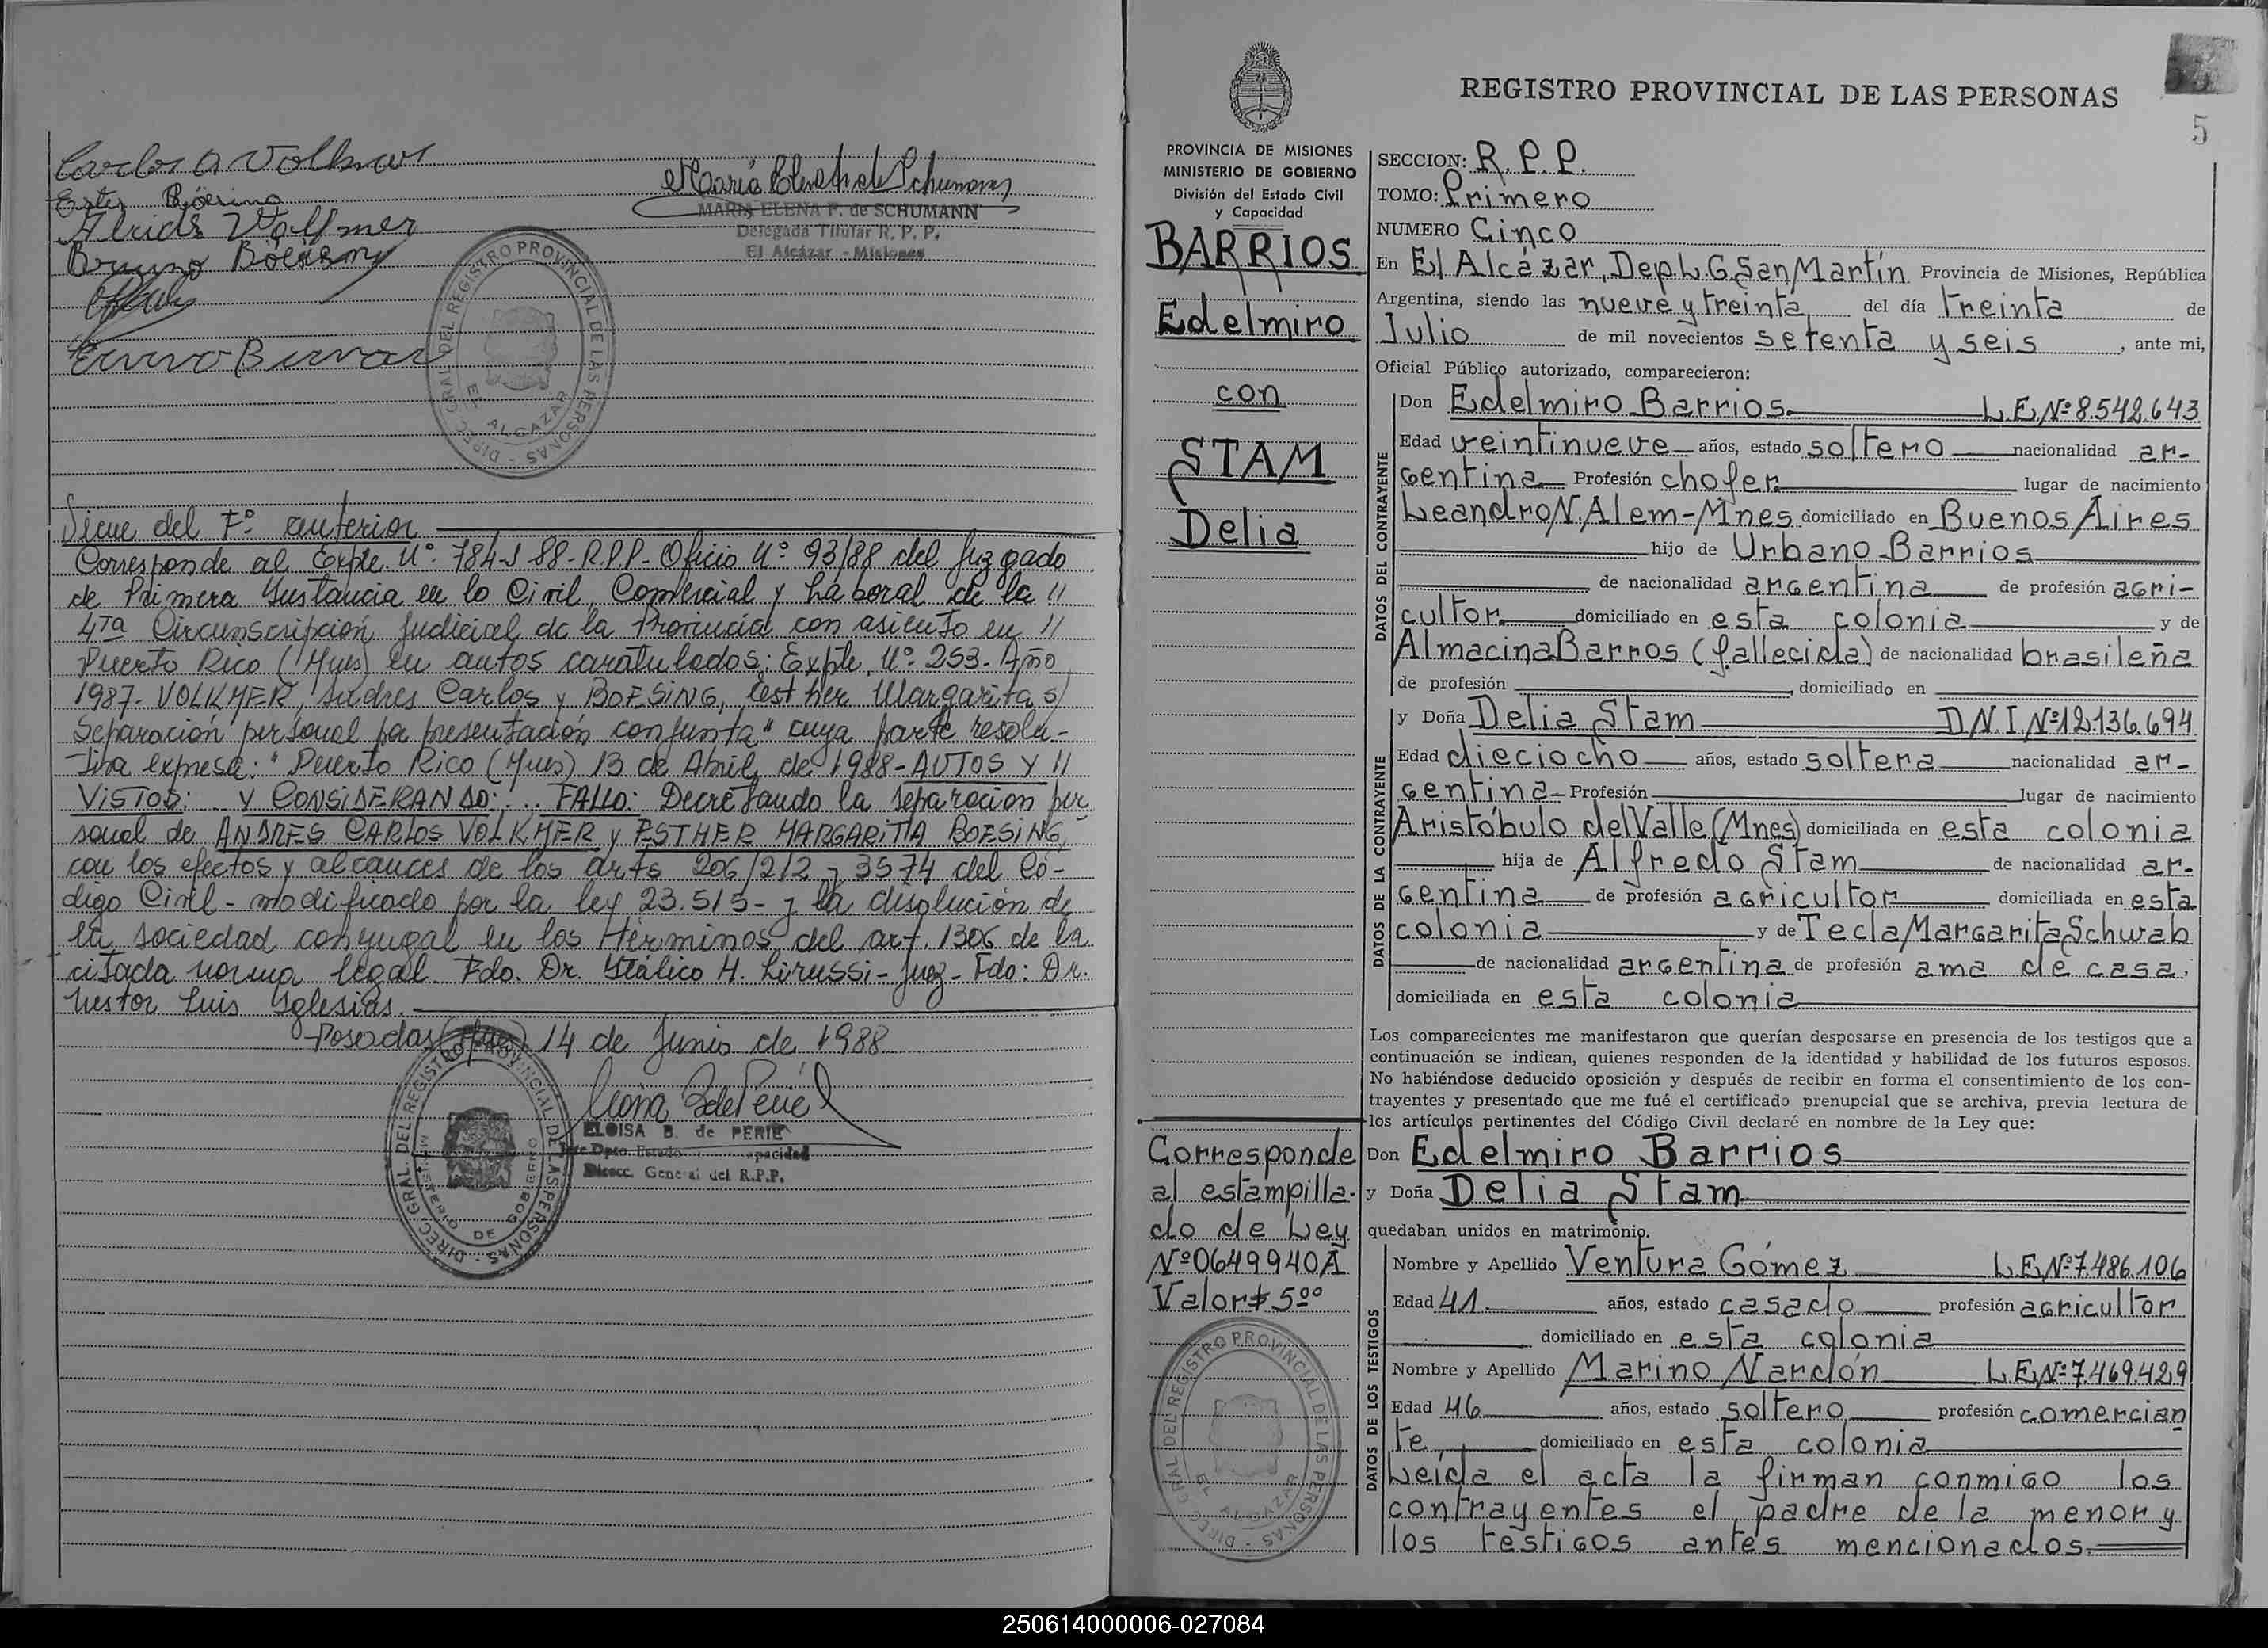 Carlos A Volkmer
María Elena de Schumann
Ester Böesing
MARIA ELENA P. de SCHUMANN
Delegada Titular R. P. P.
El Alcázar - Misiones
Volkmer
Bruno Böesing
DIREC. GRAL. DEL REGISTRO PROVINCIAL DE LAS PERSONAS -
EL ALCAZAR
Sigue del Fº anterior
Corresponde al Expte. Nº 784-J 88-R.P.P.- Oficio Nº 93/88 del Juzgado
de Primera Instancia en lo Civil, Comercial y Laboral de la //
4TA Circunscripción Judicial de la Provincia con asiento en //
Puerto Rico (Mnes) en autos caratulados: Expte. Nº 253- Año
1987- VOLKMER, Andres Carlos y BOESING, Esther Margarita s/
Separación personal por presentación conjunta" cuya parte resolu-
tiva expresa: "Puerto Rico (Mnes) 13 de Abril de 1988- AUTOS Y //
VISTOS: .. Y CONSIDERANDO: ... FALLO: Decretando la separación per-
sonal de ANDRES CARLOS VOLKMER y ESTHER MARGARITA BOESING,
con los efectos y alcances de los arts 206/212 y 3574 del Có-
digo Civil - modificado por la ley 23.515- y la disolución de
la sociedad conyugal en los términos del art. 1306 de la
citada norma legal. Fdo. Dr. Itálico H. Lirussi- Juez- Fdo: Dr.
Nestor Luis Iglesias.
Posadas (Mnes) 14 de Junio de 1988
ELOISA B. de PERIE
Jefe Dpto. Estado apacidad
Direcc. General del R.P.P.
DIREC. GRAL. DEL REGISTRO PROVINCIAL DE LAS PERSONAS -
MINISTERIO DE GOBIERNO
REGISTRO PROVINCIAL DE LAS PERSONAS
5
PROVINCIA DE MISIONES
MINISTERIO DE GOBIERNO
División del Estado Civil
y Capacidad
BARRIOS
Edelmiro
con
STAM
Delia
Corresponde
al estampilla-
do de Ley
Nº0649940A
Valor $ 5.00
DIREC. GRAL. DEL REGISTRO PROVINCIAL DE LAS PERSONAS -
EL ALCAZAR
SECCION: R.P.P.
TOMO: Primero
NUMERO Cinco
En El Alcázar, Dep.L.G.San Martín Provincia de Misiones, República
Argentina, siendo las nueve y treinta, del día treinta de
Julio de mil novecientos setenta y seis, ante mi,
Oficial Público autorizado, comparecieron:
DATOS DEL CONTRAYENTE
Don Edelmiro Barrios. L.E.Nº8.542.643
Edad veintinueve años, estado soltero nacionalidad ar-
gentina Profesión chofer. lugar de nacimiento
Leandro N. Alem-Mnes domiciliado en Buenos Aires
hijo de Urbano Barrios
de nacionalidad argentina de profesión agri-
cultor. domiciliado en esta colonia y de
Almacina Barros (fallecida) de nacionalidad brasileña
de profesión , domiciliado en
DATOS DE LA CONTRAYENTE
y Doña Delia Stam D.N.I.Nº12.136.694
Edad dieciocho años, estado soltera nacionalidad ar-
gentina Profesión lugar de nacimiento
Aristóbulo del Valle (Mnes) domiciliada en esta colonia
hija de Alfredo Stam de nacionalidad ar-
gentina de profesión agricultor domiciliada en esta
colonia y de Tecla Margarita Schwab
de nacionalidad argentina de profesión ama de casa,
domiciliada en esta colonia
Los comparecientes me manifestaron que querían desposarse en presencia de los testigos que a
continuación se indican, quienes responden de la identidad y habilidad de los futuros esposos.
No habiéndose deducido oposición y después de recibir en forma el consentimiento de los con-
trayentes y presentado que me fué el certificado prenupcial que se archiva, previa lectura de
los artículos pertinentes del Código Civil declaré en nombre de la Ley que:
Don Edelmiro Barrios
y Doña Delia Stam
quedaban unidos en matrimonio.
DATOS DE LOS TESTIGOS
Nombre y Apellido Ventura Gómez L.E.Nº7.486.106
Edad 41. años, estado casado profesión agricultor
domiciliado en esta colonia
Nombre y Apellido Marino Nardón L.E.Nº7.469.429
Edad 46 años, estado soltero profesión comercian
te, domiciliado en esta colonia
Leída el acta la firman conmigo los
contrayentes el padre de la menor y
los testigos antes mencionados.
250614000006-027084